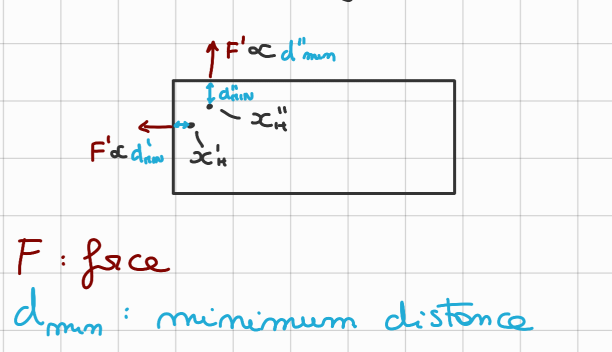 F' ∝ d''min
d''min
x''H
F' ∝ d'min
x'H
F : force
dmin : minimum distance